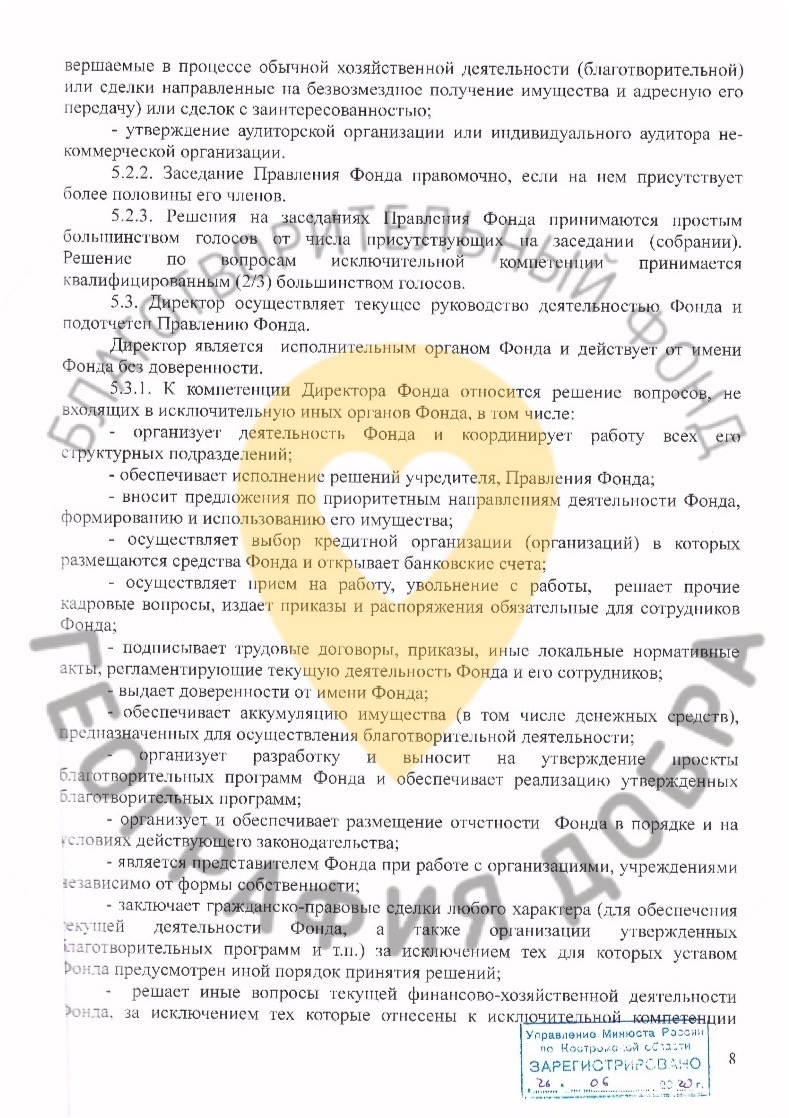 вершаемые в процессе обычной хозяйственной деятельности (благотворительной)
или сделки направленные на безвозмездное получение имущества и адресную его
передачу) или сделок с заинтересованностью;
- утверждение аудиторской организации или индивидуального аудитора не-
коммерческой организации.
5.2.2. Заседание Правления Фонда правомочно, если на нем присутствует
более половины его членов.
5.2.3. Решения на заседаниях Правления Фонда принимаются простым
большинством голосов от числа присутствующих на заседании (собрании).
Решение по вопросам исключительной компетенции принимается
квалифицированным (2/3) большинством голосов.
5.3. Директор осуществляет текущее руководство деятельностью Фонда и
подотчетен Правлению Фонда.
Директор является исполнительным органом Фонда и действует от имени
Фонда без доверенности.
5.3.1. К компетенции Директора Фонда относится решение вопросов, не
входящих в исключительную иных органов Фонда, в том числе:
- организует деятельность Фонда и координирует работу всех его
структурных подразделений;
- обеспечивает исполнение решений учредителя, Правления Фонда;
- вносит предложения по приоритетным направлениям деятельности Фонда,
формированию и использованию его имущества;
- осуществляет выбор кредитной организации (организаций) в которых
размещаются средства Фонда и открывает банковские счета;
- осуществляет прием на работу, увольнение с работы, решает прочие
кадровые вопросы, издает приказы и распоряжения обязательные для сотрудников
Фонда;
- подписывает трудовые договоры, приказы, иные локальные нормативные
акты, регламентирующие текущую деятельность Фонда и его сотрудников;
- выдает доверенности от имени Фонда;
- обеспечивает аккумуляцию имущества (в том числе денежных средств),
предназначенных для осуществления благотворительной деятельности;
- организует разработку и выносит на утверждение проекты
благотворительных программ Фонда и обеспечивает реализацию утвержденных
благотворительных программ;
- организует и обеспечивает размещение отчетности Фонда в порядке и на
условиях действующего законодательства;
- является представителем Фонда при работе с организациями, учреждениями
независимо от формы собственности;
- заключает гражданско-правовые сделки любого характера (для обеспечения
текущей деятельности Фонда, а также организации утвержденных
благотворительных программ и т.п.) за исключением тех для которых уставом
Фонда предусмотрен иной порядок принятия решений;
- решает иные вопросы текущей финансово-хозяйственной деятельности
Фонда, за исключением тех которые отнесены к исключительной компетенции
Управление Минюста России
по Костромской области
ЗАРЕГИСТРИРОВАНО
26. 06 2020 г.
8
БЛАГОТВОРИТЕЛЬНЫЙ ФОНД
ГЕОГРАФИЯ ДОБРА